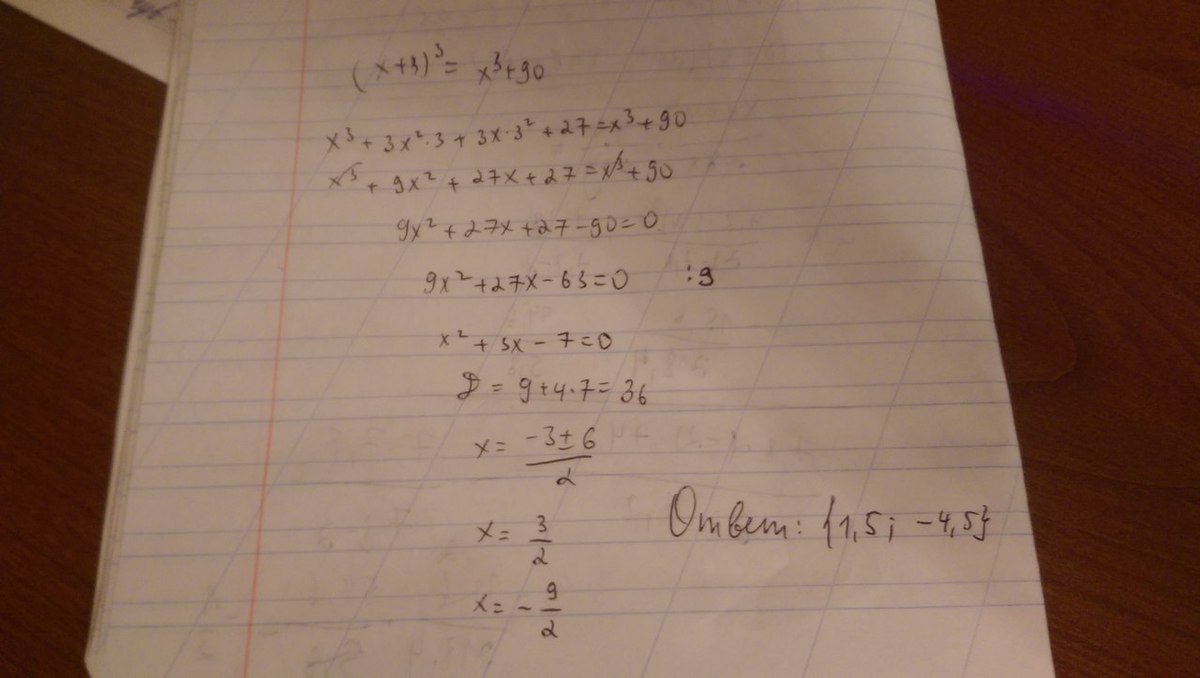 (x+3)³ = x³+90
x³ + 3x²·3 + 3x·3² + 27 = x³ + 90
x³ + 9x² + 27x + 27 = x³ + 90
9x² + 27x + 27 - 90 = 0
9x² + 27x - 63 = 0 :9
x² + 3x - 7 = 0
D = 9 + 4·7 = 36
x = (-3 ± 6)/2
x = 3/2
Ответ: {1,5; -4,5}
x = -9/2